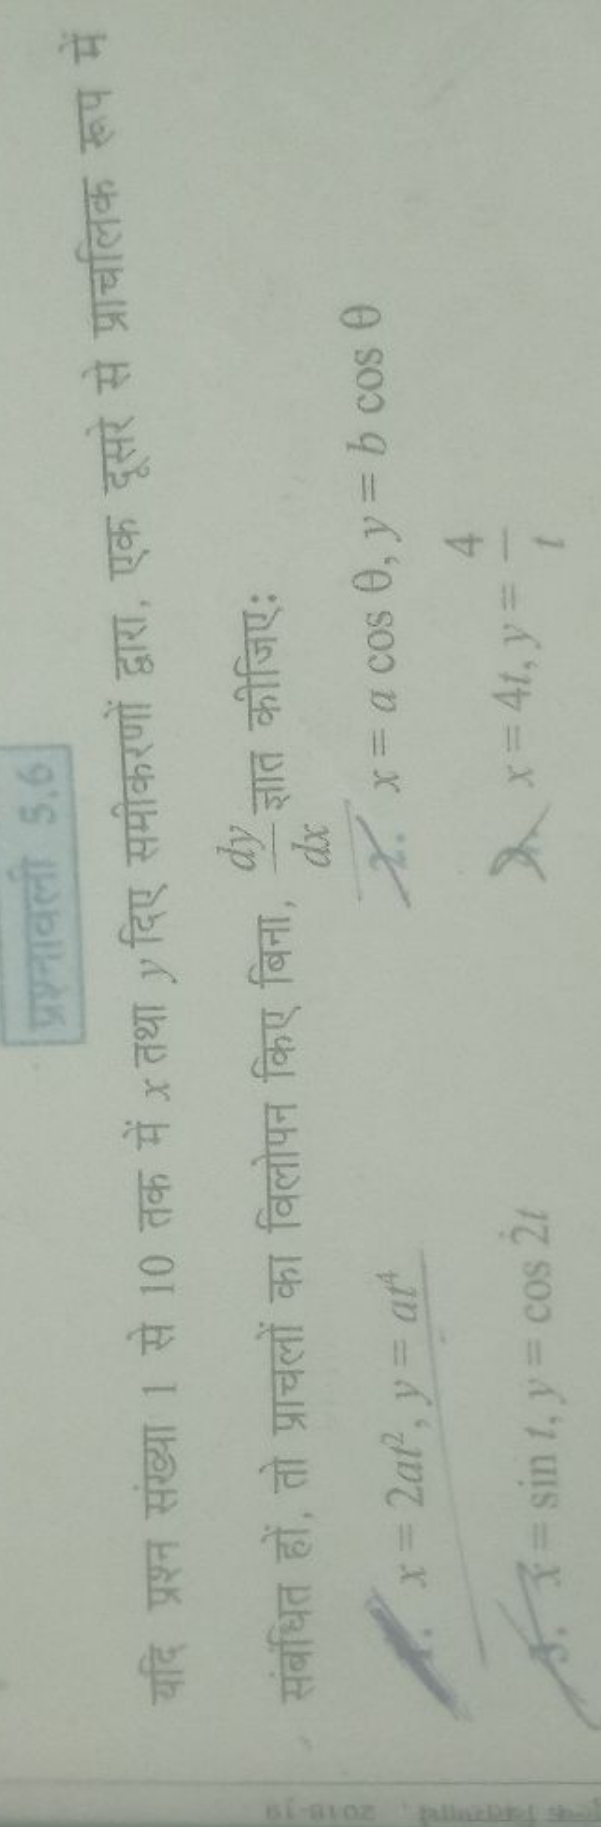 प्रश्नावली 5.6
यदि प्रश्न संख्या 1 से 10 तक में x तथा y दिए समीकरणों द्वारा, एक दूसरे से प्राचलिक रूप में
संबंधित हों, तो प्राचलों का विलोपन किए बिना, dy/dx ज्ञात कीजिए:
1. x = 2at², y = at⁴ 2. x = a cos θ, y = b cos θ
3. x = sin t, y = cos 2t x = 4t, y = 4/t
2018-19